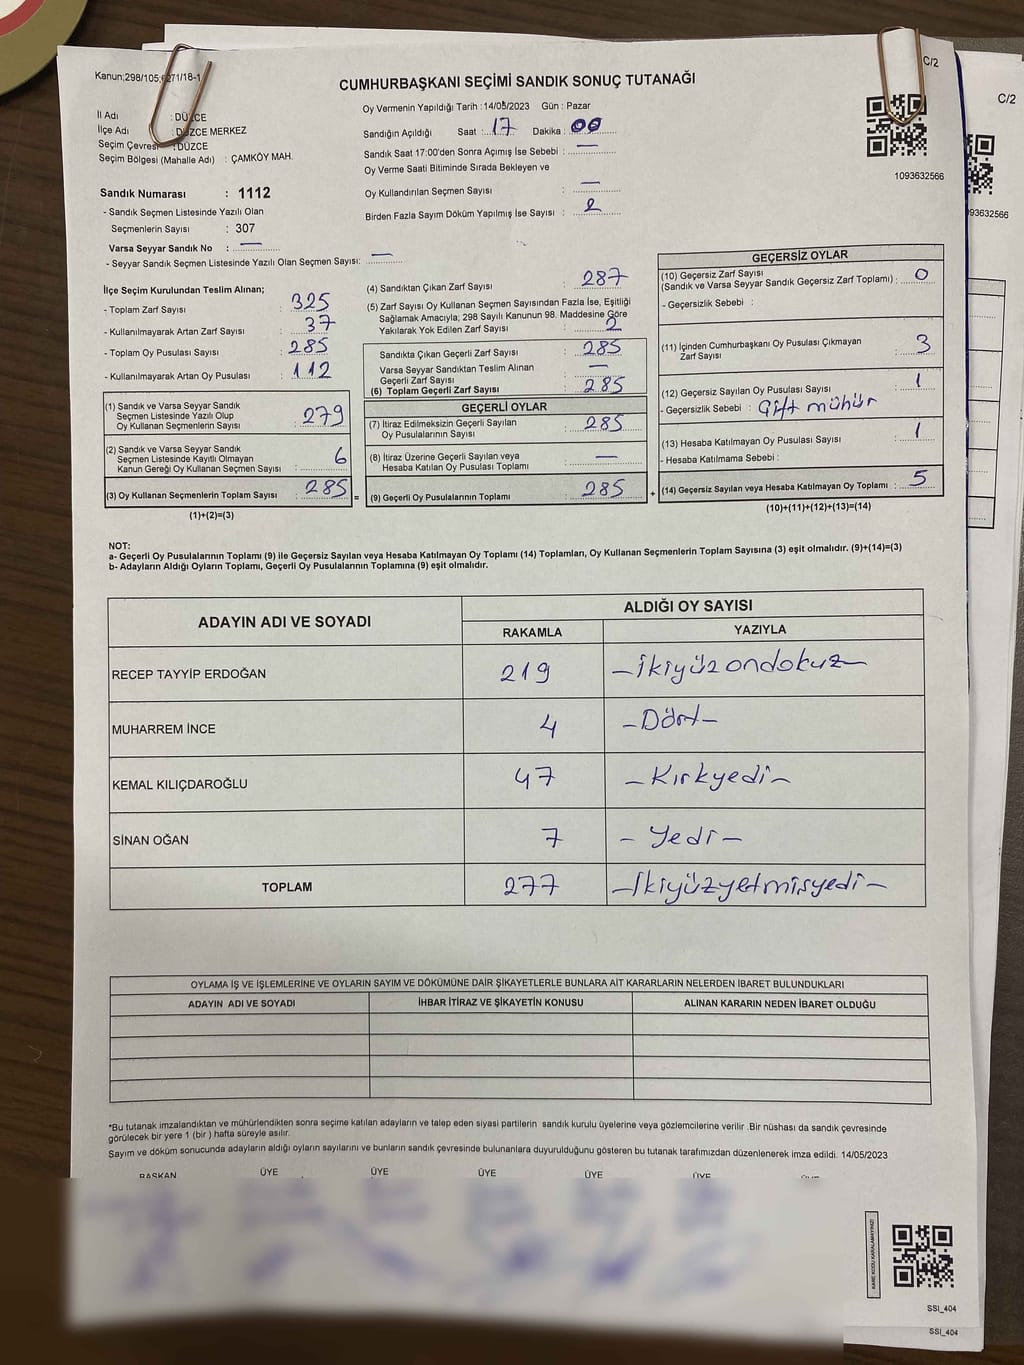 Kanun;298/105;6271/18-1
C/2
C/2
CUMHURBAŞKANI SEÇİMİ SANDIK SONUÇ TUTANAĞI
İl Adı : DÜZCE
İlçe Adı : DÜZCE MERKEZ
Seçim Çevresi : DÜZCE
Seçim Bölgesi (Mahalle Adı) : ÇAMKÖY MAH.
Sandık Numarası : 1112
- Sandık Seçmen Listesinde Yazılı Olan
Seçmenlerin Sayısı : 307
Varsa Seyyar Sandık No : —
- Seyyar Sandık Seçmen Listesinde Yazılı Olan Seçmen Sayısı: —
Oy Vermenin Yapıldığı Tarih :14/05/2023 Gün : Pazar
Sandığın Açıldığı Saat : 17 Dakika : 00
Sandık Saat 17:00'den Sonra Açımış İse Sebebi : —
Oy Verme Saati Bitiminde Sırada Bekleyen ve
Oy Kullandırılan Seçmen Sayısı : —
Birden Fazla Sayım Döküm Yapılmış İse Sayısı : 2
1093632566
093632566
İlçe Seçim Kurulundan Teslim Alınan;
- Toplam Zarf Sayısı : 325
- Kullanılmayarak Artan Zarf Sayısı : 37
- Toplam Oy Pusulası Sayısı : 285
- Kullanılmayarak Artan Oy Pusulası : 112
(1) Sandık ve Varsa Seyyar Sandık
Seçmen Listesinde Yazılı Olup
Oy Kullanan Seçmenlerin Sayısı : 279
(2) Sandık ve Varsa Seyyar Sandık
Seçmen Listesinde Kayıtlı Olmayan
Kanun Gereği Oy Kullanan Seçmen Sayısı : 6
(3) Oy Kullanan Seçmenlerin Toplam Sayısı : 285 =
(1)+(2)=(3)
(4) Sandıktan Çıkan Zarf Sayısı : 287
(5) Zarf Sayısı Oy Kullanan Seçmen Sayısından Fazla İse, Eşitliği
Sağlamak Amacıyla; 298 Sayılı Kanunun 98. Maddesine Göre
Yakılarak Yok Edilen Zarf Sayısı : 2
Sandıkta Çıkan Geçerli Zarf Sayısı : 285
Varsa Seyyar Sandıktan Teslim Alınan
Geçerli Zarf Sayısı : —
(6) Toplam Geçerli Zarf Sayısı : 285
GEÇERLİ OYLAR
(7) İtiraz Edilmeksizin Geçerli Sayılan
Oy Pusulalarının Sayısı : 285
(8) İtiraz Üzerine Geçerli Sayılan veya
Hesaba Katılan Oy Pusulası Toplamı : —
(9) Geçerli Oy Pusulalarının Toplamı : 285 +
GEÇERSİZ OYLAR
(10) Geçersiz Zarf Sayısı
(Sandık ve Varsa Seyyar Sandık Geçersiz Zarf Toplamı) : 0
- Geçersizlik Sebebi :
(11) İçinden Cumhurbaşkanı Oy Pusulası Çıkmayan
Zarf Sayısı : 3
(12) Geçersiz Sayılan Oy Pusulası Sayısı : 1
- Geçersizlik Sebebi : Çift mühür
(13) Hesaba Katılmayan Oy Pusulası Sayısı : 1
- Hesaba Katılmama Sebebi :
(14) Geçersiz Sayılan veya Hesaba Katılmayan Oy Toplamı : 5
(10)+(11)+(12)+(13)=(14)
NOT:
a- Geçerli Oy Pusulalarının Toplamı (9) ile Geçersiz Sayılan veya Hesaba Katılmayan Oy Toplamı (14) Toplamları, Oy Kullanan Seçmenlerin Toplam Sayısına (3) eşit olmalıdır. (9)+(14)=(3)
b- Adayların Aldığı Oyların Toplamı, Geçerli Oy Pusulalarının Toplamına (9) eşit olmalıdır.
ADAYIN ADI VE SOYADI
ALDIĞI OY SAYISI
RAKAMLA YAZIYLA
RECEP TAYYİP ERDOĞAN 219 –İkiyüzondokuz–
MUHARREM İNCE 4 –Dört–
KEMAL KILIÇDAROĞLU 47 –Kırkyedi–
SİNAN OĞAN 7 –Yedi–
TOPLAM 277 –İkiyüzyetmişyedi–
OYLAMA İŞ VE İŞLEMLERİNE VE OYLARIN SAYIM VE DÖKÜMÜNE DAİR ŞİKAYETLERLE BUNLARA AİT KARARLARIN NELERDEN İBARET BULUNDUKLARI
ADAYIN ADI VE SOYADI İHBAR İTİRAZ VE ŞİKAYETİN KONUSU ALINAN KARARIN NEDEN İBARET OLDUĞU
*Bu tutanak imzalandıktan ve mühürlendikten sonra seçime katılan adayların ve talep eden siyasi partilerin sandık kurulu üyelerine veya gözlemcilerine verilir .Bir nüshası da sandık çevresinde
görülecek bir yere 1 (bir ) hafta süreyle asılır.
Sayım ve döküm sonucunda adayların aldığı oyların sayılarını ve bunların sandık çevresinde bulunanlara duyurulduğunu gösteren bu tutanak tarafımızdan düzenlenerek imza edildi. 14/05/2023
BAŞKAN ÜYE ÜYE ÜYE ÜYE ÜYE
KARE KODU KARALAMAYINIZ!
SSI_404
SSI_404